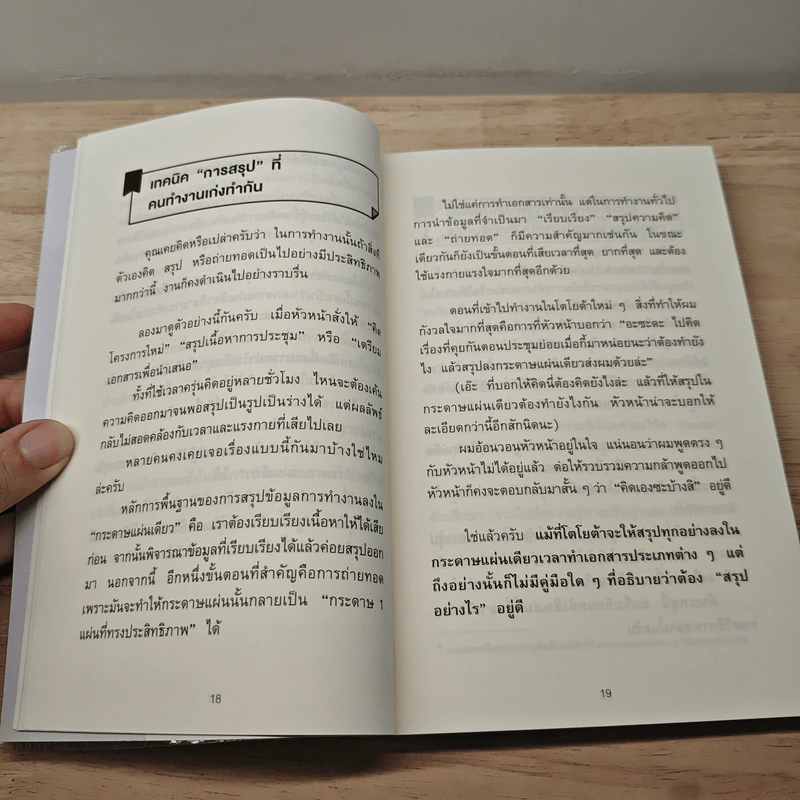 เทคนิค “การสรุป” ที่
คนทำงานเก่งทำกัน
คุณเคยคิดหรือเปล่าครับว่า ในการทำงานนั้นถ้าสิ่งที่
ตัวเองคิด สรุป หรือถ่ายทอดเป็นไปอย่างมีประสิทธิภาพ
มากกว่านี้ งานก็คงดำเนินไปอย่างราบรื่น
ลองมาดูตัวอย่างนี้กันครับ เมื่อหัวหน้าสั่งให้ “คิด
โครงการใหม่” “สรุปเนื้อหาการประชุม” หรือ “เตรียม
เอกสารเพื่อนำเสนอ”
ทั้งที่ใช้เวลาครุ่นคิดอยู่หลายชั่วโมง ไหนจะต้องเค้น
ความคิดออกมาจนพอสรุปเป็นรูปเป็นร่างได้ แต่ผลลัพธ์
กลับไม่สอดคล้องกับเวลาและแรงกายที่เสียไปเลย
หลายคนคงเคยเจอเรื่องแบบนี้กันมาบ้างใช่ไหม
ล่ะครับ
หลักการพื้นฐานของการสรุปข้อมูลการทำงานลงใน
“กระดาษแผ่นเดียว” คือ เราต้องเรียบเรียงเนื้อหาให้ได้เสีย
ก่อน จากนั้นพิจารณาข้อมูลที่เรียบเรียงได้แล้วค่อยสรุปออก
มา นอกจากนี้ อีกหนึ่งขั้นตอนที่สำคัญคือการถ่ายทอด
เพราะมันจะทำให้กระดาษแผ่นนั้นกลายเป็น “กระดาษ 1
แผ่นที่ทรงประสิทธิภาพ” ได้
18
ไม่ใช่แค่การทำเอกสารเท่านั้น แต่ในการทำงานทั่วไป
การนำข้อมูลที่จำเป็นมา “เรียบเรียง” “สรุปความคิด”
และ “ถ่ายทอด” ก็มีความสำคัญมากเช่นกัน ในขณะ
เดียวกันก็ยังเป็นขั้นตอนที่เสียเวลาที่สุด ยากที่สุด และต้อง
ใช้แรงกายแรงใจมากที่สุดอีกด้วย
ตอนที่เข้าไปทำงานในโตโยต้าใหม่ ๆ สิ่งที่ทำให้ผม
กังวลใจมากที่สุดคือการที่หัวหน้าบอกว่า “อะซะดะ ไปคิด
เรื่องที่คุยกันตอนประชุมย่อยเมื่อกี้มาหน่อยนะว่าต้องทำยัง
ไง แล้วสรุปลงกระดาษแผ่นเดียวส่งผมด้วยล่ะ”
(เอ๊ะ ที่บอกให้คิดนี่ต้องคิดยังไงล่ะ แล้วที่ให้สรุปใน
กระดาษแผ่นเดียวต้องทำยังไงกัน หัวหน้าน่าจะบอกให้
ละเอียดกว่านี้อีกสักนิดนะ)
ผมอ้อนวอนหัวหน้าอยู่ในใจ แน่นอนว่าผมพูดตรง ๆ
กับหัวหน้าไม่ได้อยู่แล้ว ต่อให้รวบรวมความกล้าพูดออกไป
หัวหน้าก็คงจะตอบกลับมาสั้น ๆ ว่า “คิดเองซะบ้างสิ” อยู่ดี
ใช่แล้วครับ แม้ที่โตโยต้าจะให้สรุปทุกอย่างลงใน
กระดาษแผ่นเดียวเวลาทำเอกสารประเภทต่าง ๆ แต่
ถึงอย่างนั้นก็ไม่มีคู่มือใด ๆ ที่อธิบายว่าต้อง “สรุป
อย่างไร” อยู่ดี
19